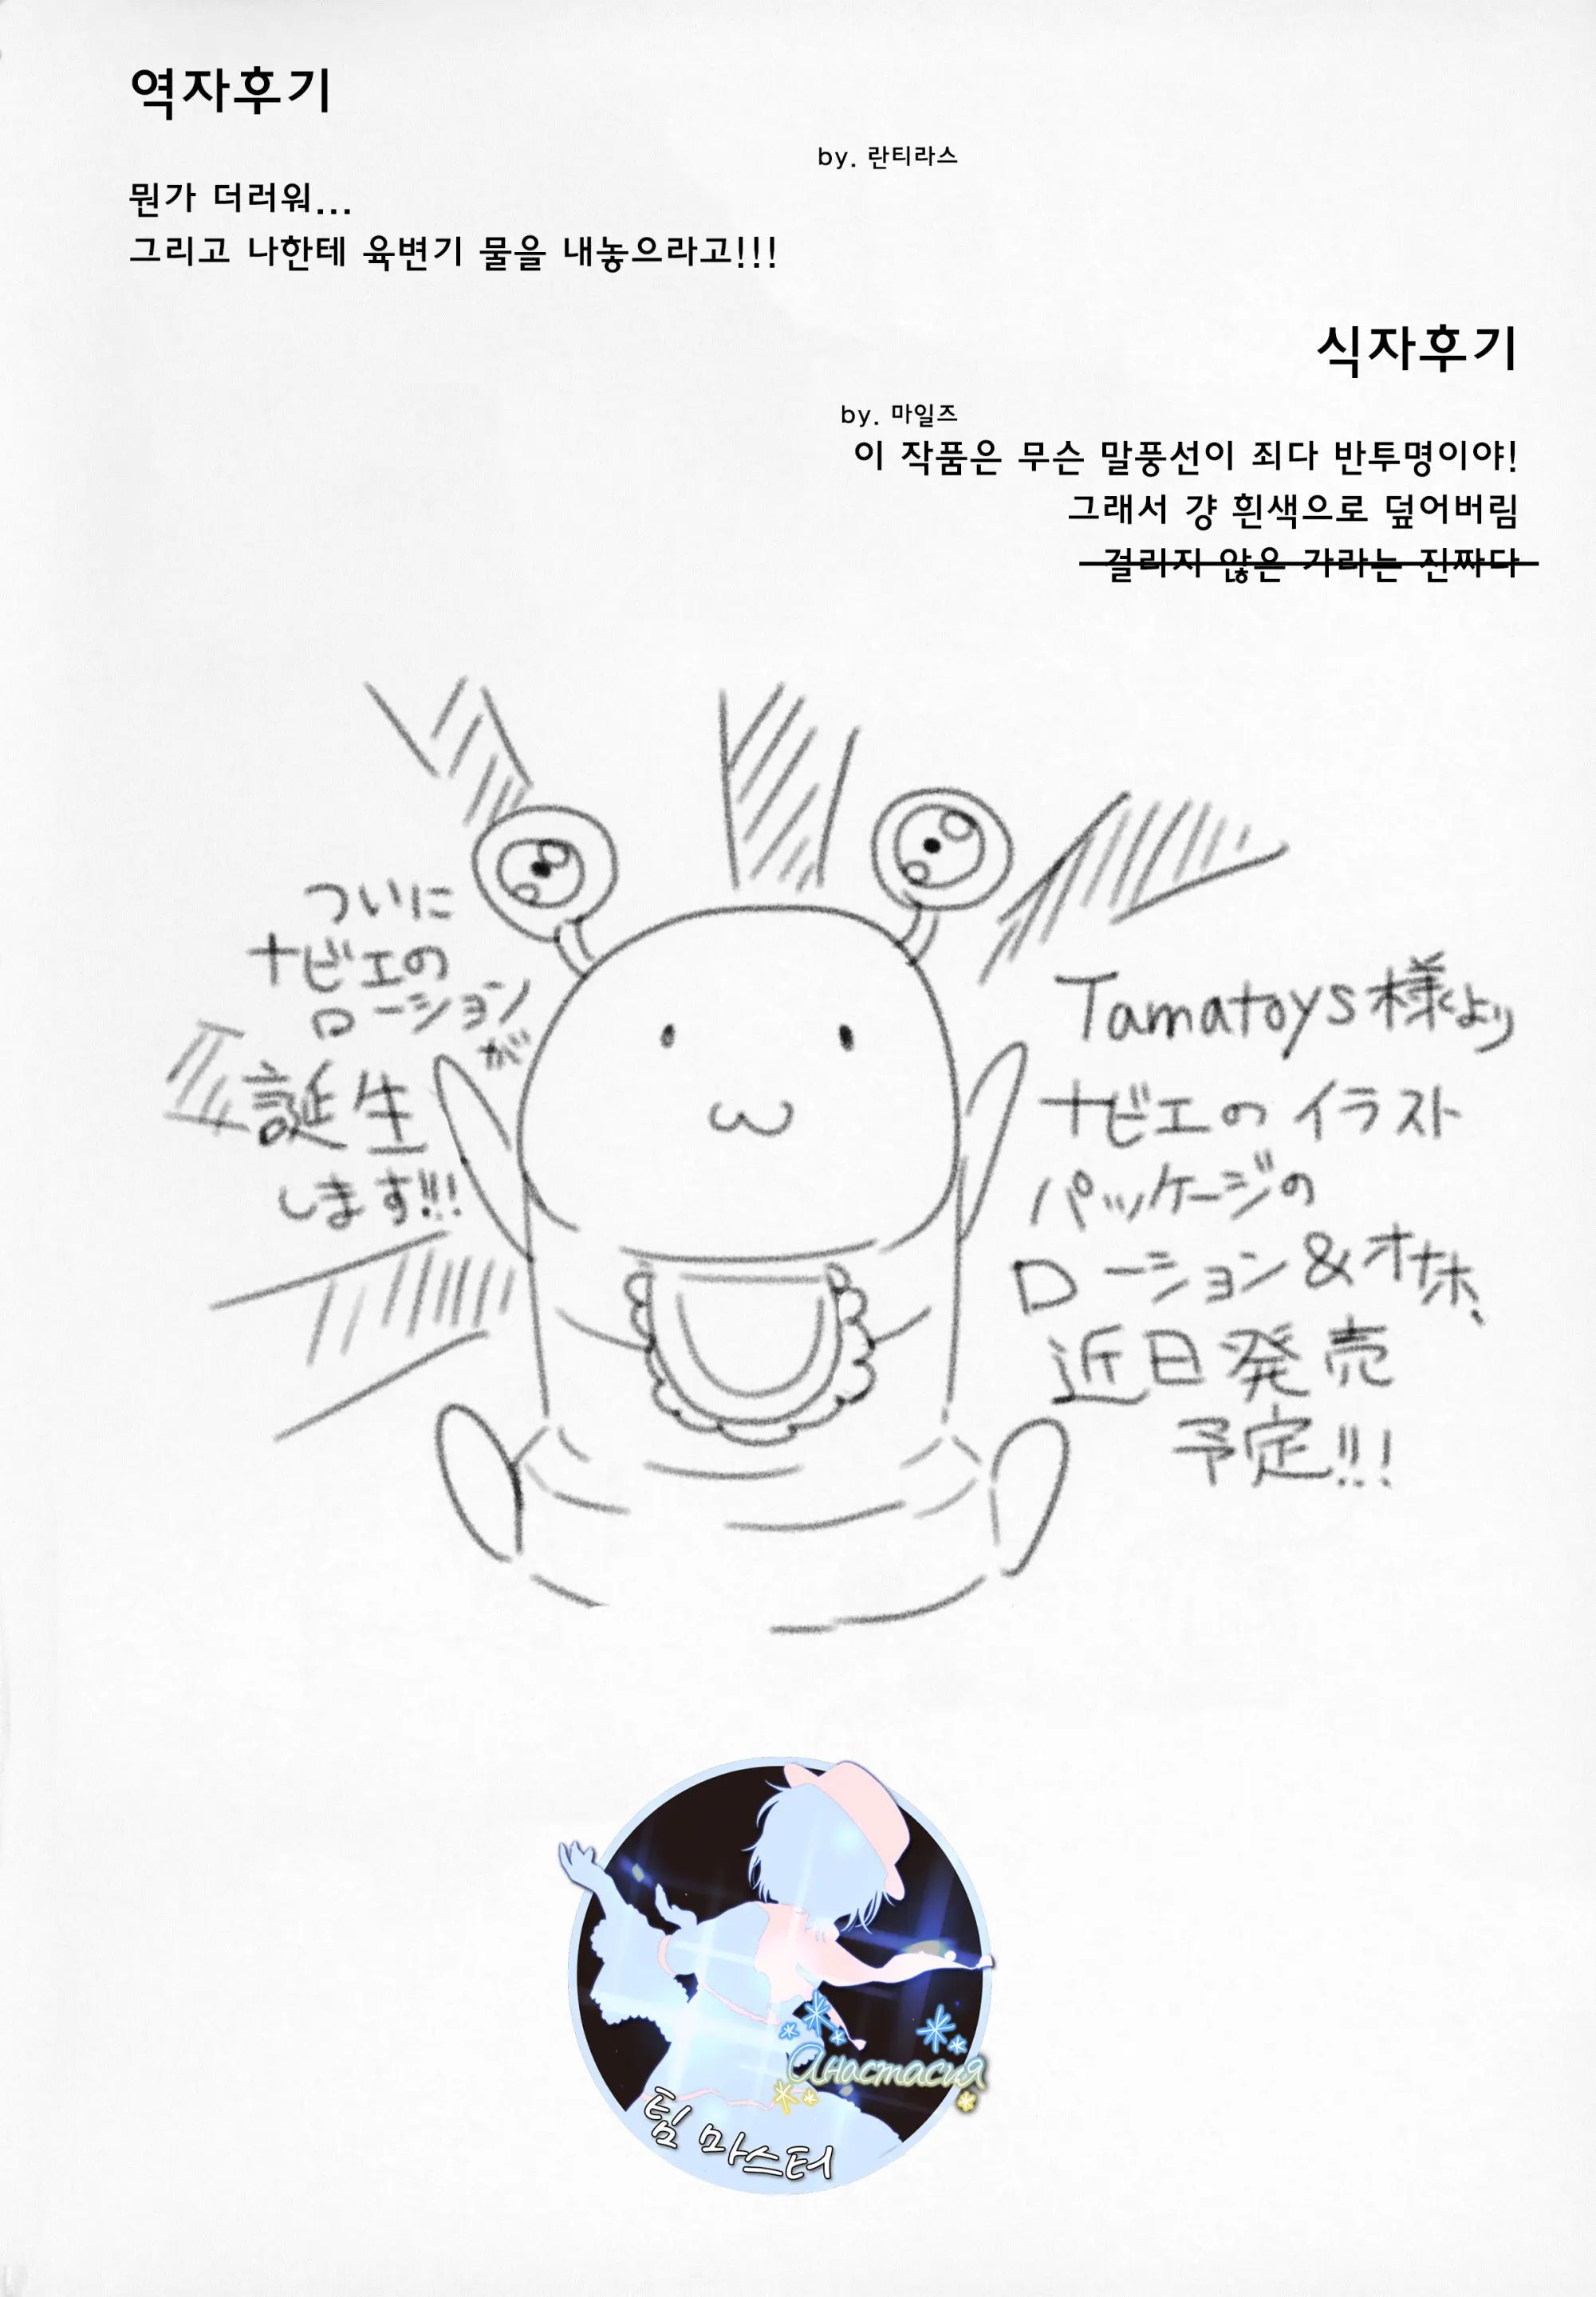 역자후기
by. 란티라스
뭔가 더러워...
그리고 나한테 육변기 물을 내놓으라고!!!
식자후기
by. 마일즈
이 작품은 무슨 말풍선이 죄다 반투명이야!
그래서 걍 흰색으로 덮어버림
걸리지 않은 가라는 진짜다
ついに
ナビエの
ローション
が
誕生
します!!!
Tamatoys様より
ナビエのイラスト
パッケージの
ローション&オナホ、
近日発売
予定!!!
Анастасия
팀 마스터